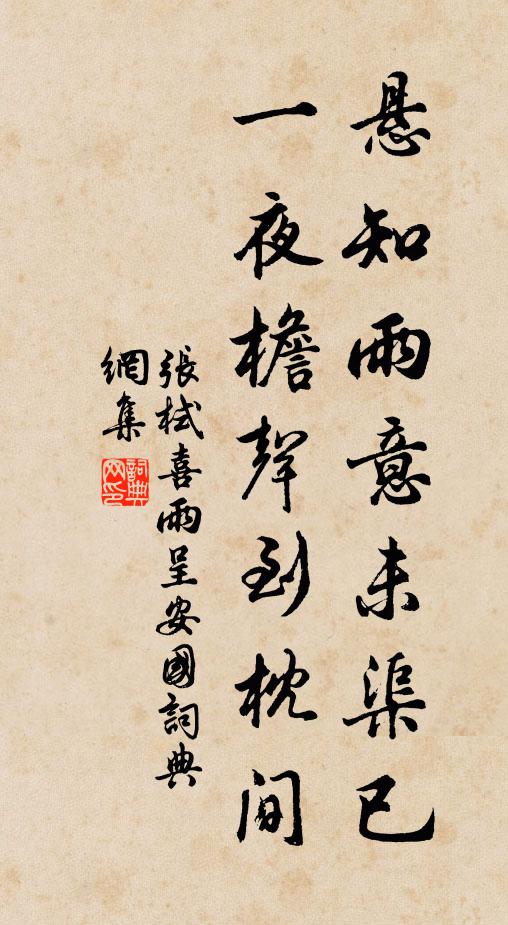 悬知雨意未渠已
一夜檐聲到枕間
張栻喜雨呈安國詞典
網集
詞典網印